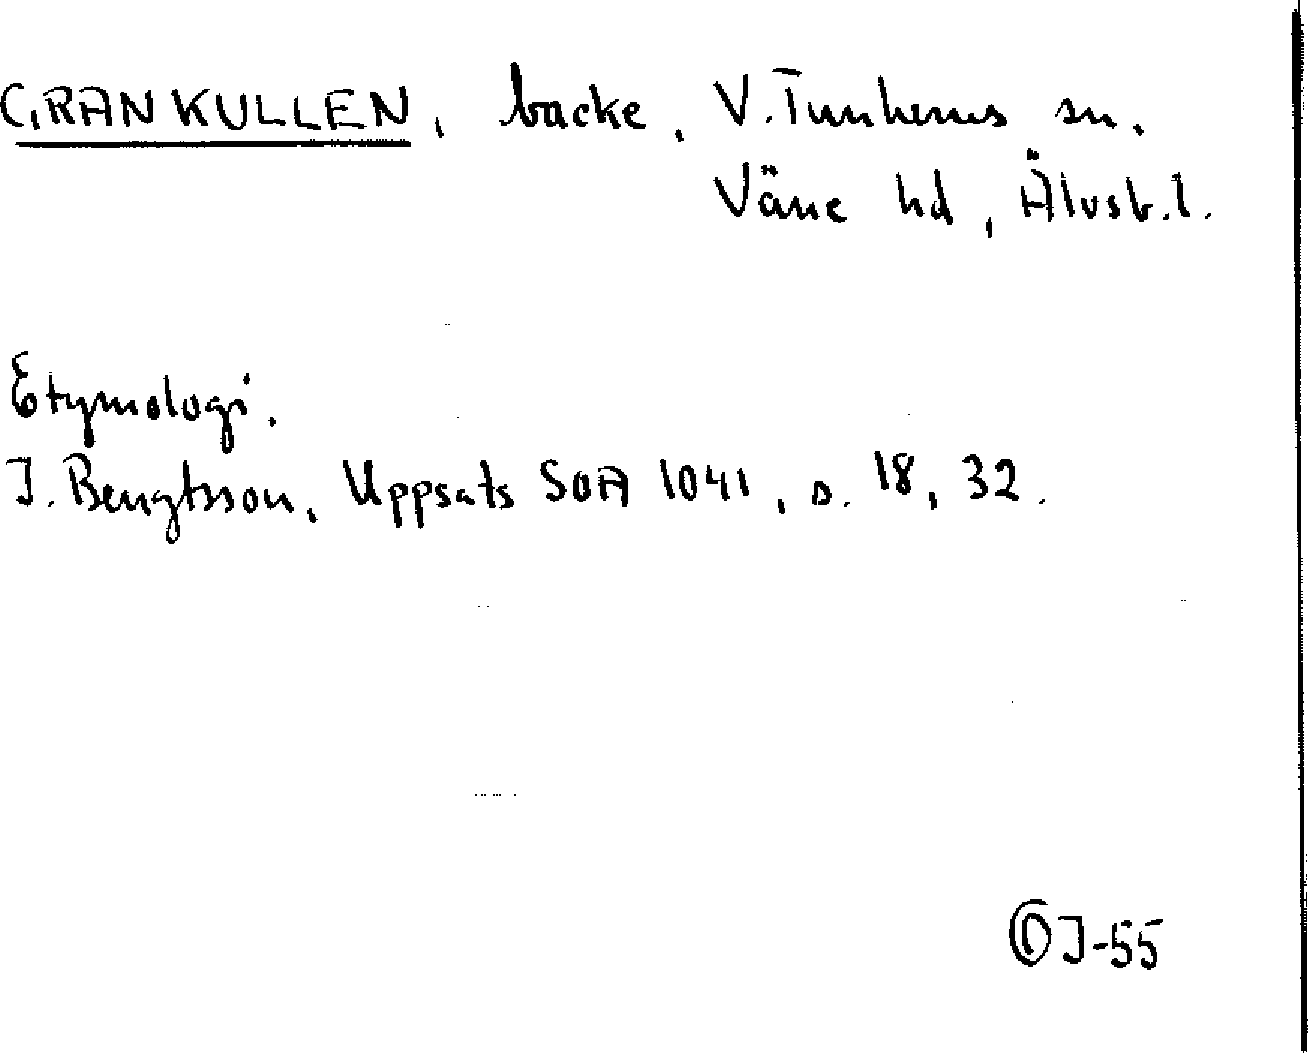 GRANKULLEN, backe, V. Tunhems sn.
Väne hd, Älvsb.l.
Etymologi.
I. Bengtsson, Uppsats SOA 1041, s. 18, 32.
J-55